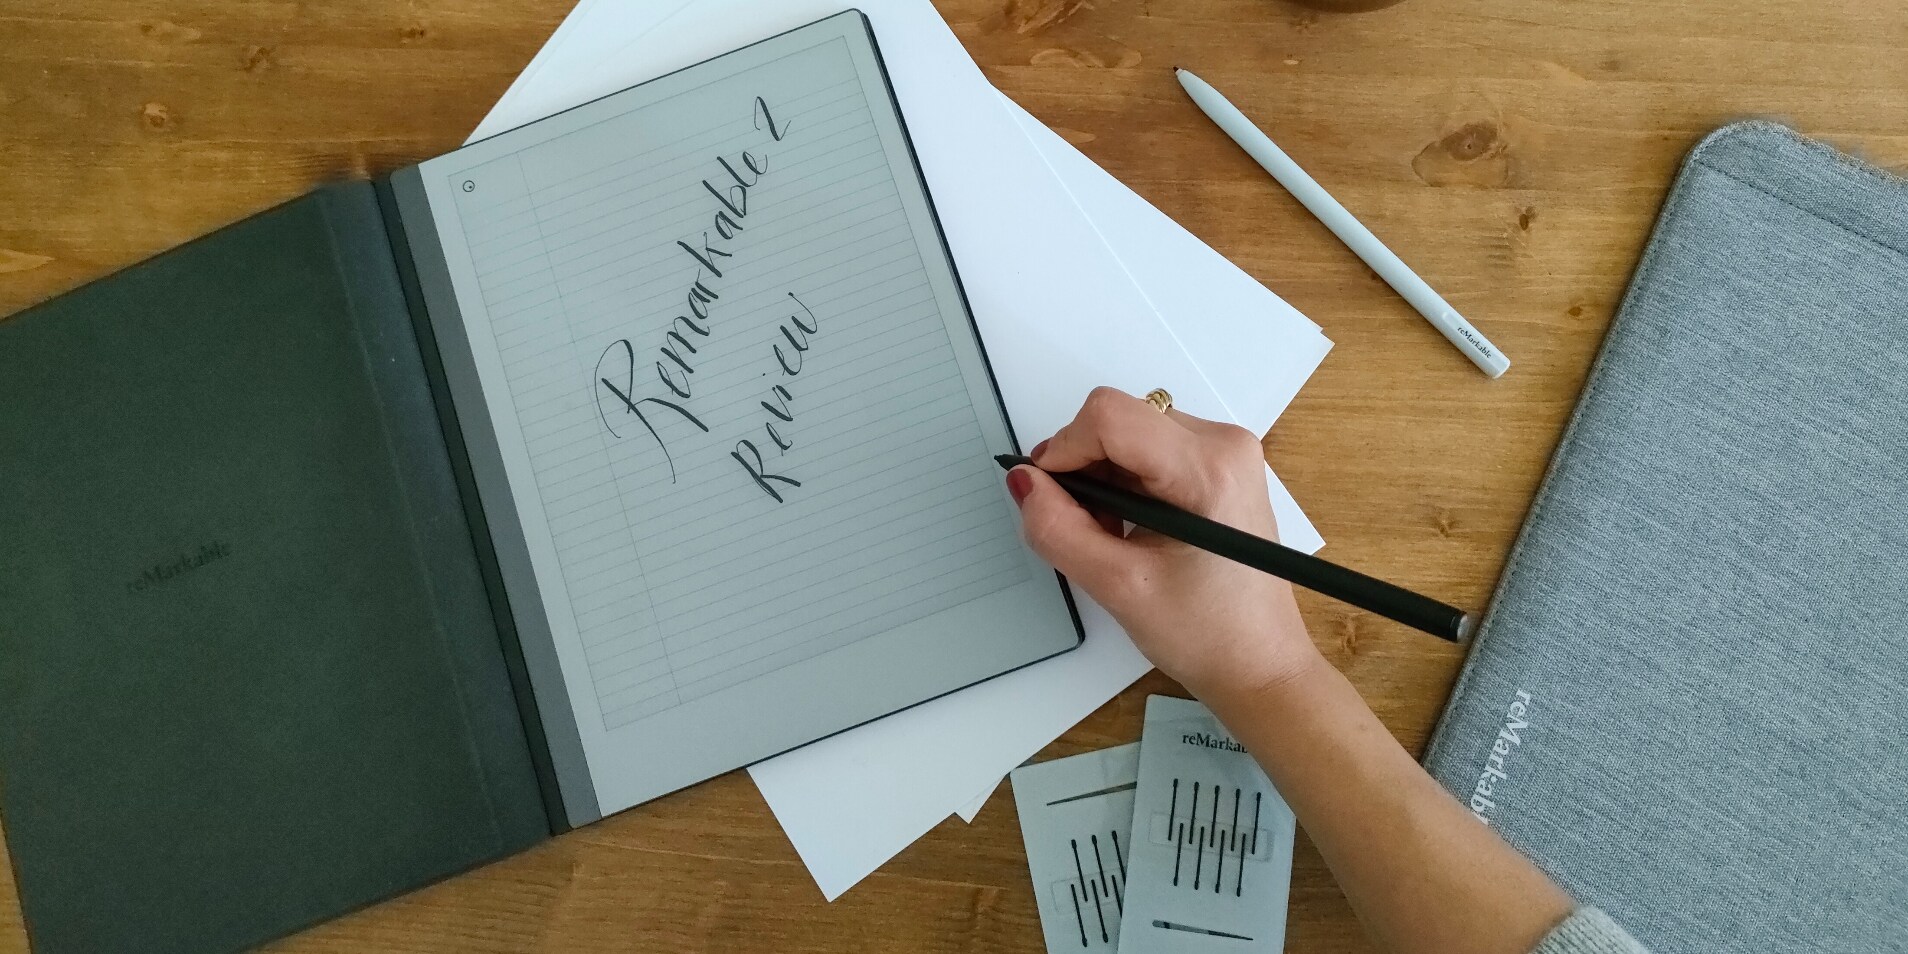 Remarkable 2
Review
reMarkable
reMarkable
reMarkab
reMarkab